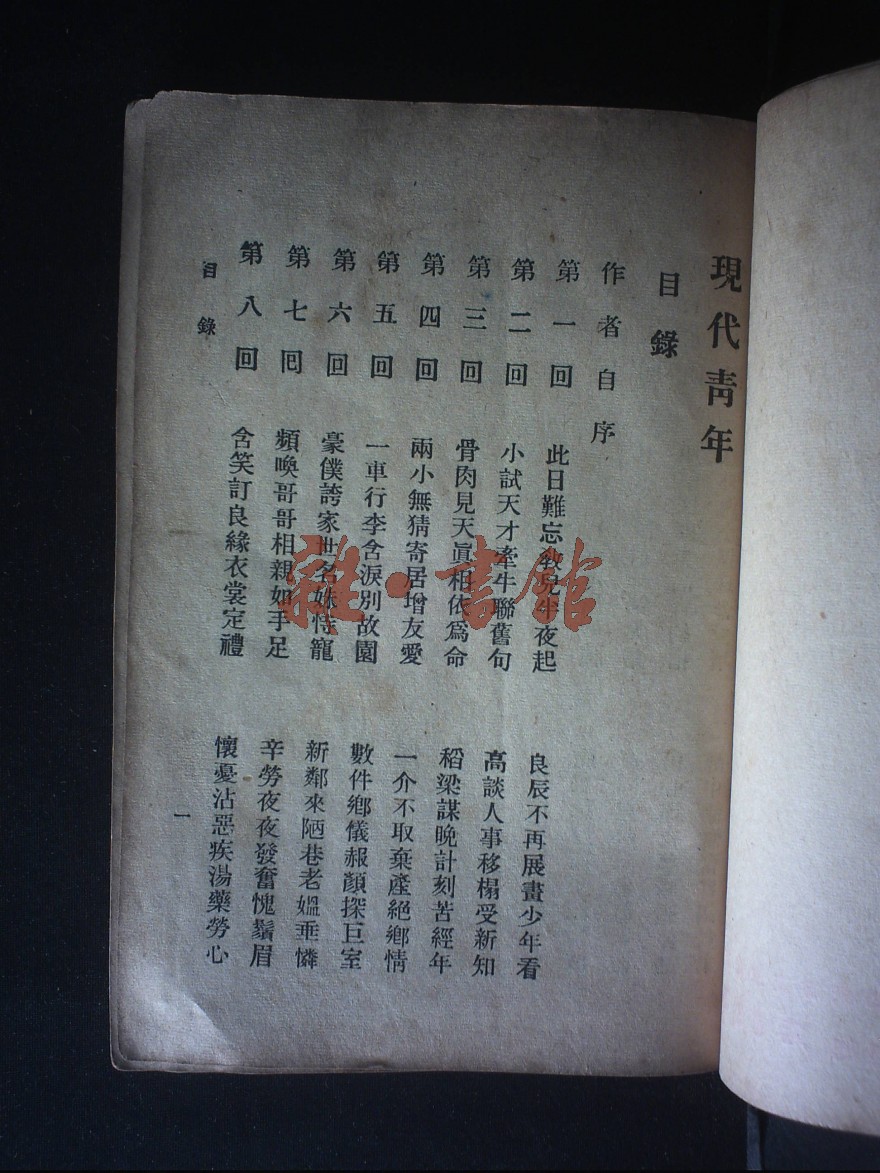 現代靑年
目錄
作者自序
第一回 此日難忘敎兒半夜起 良辰不再展畫少年看
第二回 小試天才牽牛聯舊句 高談人事移榻受新知
第三回 骨肉見天眞相依爲命 稻梁謀晚計刻苦經年
第四回 兩小無猜寄居增友愛 一介不取棄產絕鄕情
第五回 一車行李含淚別故園 數件鄕儀赧顏探巨室
第六回 豪僕誇家世名姝恃寵 新鄰來陋巷老媼垂憐
第七回 頻喚哥哥相親如手足 辛勞夜夜發奮愧鬚眉
第八回 含笑訂良緣衣裳定禮 懷憂沾惡疾湯藥勞心
目錄
一
雜·書館